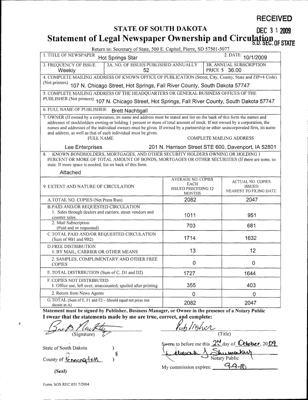 RECEIVED
DEC 31 2009
S.D. SEC. OF STATE
STATE OF SOUTH DAKOTA
Statement of Legal Newspaper Ownership and Circulation
Return to: Secretary of State, 500 E. Capitol, Pierre, SD 57501-5077
1. TITLE OF NEWSPAPER Hot Springs Star
2. DATE 10/1/2009
3. FREQUENCY OF ISSUE Weekly
3A. NO. OF ISSUES PUBLISHED ANNUALLY 52
3B. ANNUAL SUBSCRIPTION PRICE $ 36.00
4. COMPLETE MAILING ADDRESS OF KNOWN OFFICE OF PUBLICATION (Street, City, County, State and ZIP+4 Code) (Not printers)
107 N. Chicago Street, Hot Springs, Fall River County, South Dakota 57747
5. COMPLETE MAILING ADDRESS OF THE HEADQUARTERS OR GENERAL BUSINESS OFFICES OF THE PUBLISHER (Not printers) 107 N. Chicago Street, Hot Springs, Fall River County, South Dakota 57747
6. FULL NAME OF PUBLISHER Brett Nachtigall
7. OWNER (If owned by a corporation, its name and address must be stated and list on the back of this form the names and
addresses of stockholders owning or holding 1 percent or more of total amount of stock. If not owned by a corporation, the
names and addresses of the individual owners must be given. If owned by a partnership or other unincorporated firm, its name
and address, as well as that of each individual must be given.
FULL NAME COMPLETE MAILING ADDRESS
Lee Enterprises 201 N. Harrison Street STE 600, Davenport, IA 52801
8. KNOWN BONDHOLDERS, MORTGAGES, AND OTHER SECURITY HOLDERS OWNING OR HOLDING 1
PERCENT OR MORE OF TOTAL AMOUNT OF BONDS, MORTGAGES OR OTHER SECURITIES (If there are none, so
state. If more space is needed, list on back of this form.
Attached
9. EXTENT AND NATURE OF CIRCULATION
AVERAGE NO. COPIES EACH ISSUED PRECEDING 12 MONTHS
ACTUAL NO. COPIES ISSUED NEAREST TO FILING DATE
A. TOTAL NO. COPIES (Net Press Run) 2082 2047
B. PAID AND/OR REQUESTED CIRCULATION
1. Sales through dealers and carriers, street vendors and counter sales. 1011 951
2. Mail Subscription (Paid and or requested) 703 681
C. TOTAL PAID AND/OR REQUESTED CIRCULATION (Sum of 9B1 and 9B2) 1714 1632
D. FREE DISTRIBUTION
1. BY MAIL, CARRIER OR OTHER MEANS 13 12
2. SAMPLES, COMPLIMENTARY AND OTHER FREE COPIES 0 0
E. TOTAL DISTRIBUTION (Sum of C, D1 and D2) 1727 1644
F. COPIES NOT DISTRIBUTED
1. Office use, left over, unaccounted, spoiled after printing 355 403
2. Return from News Agents 0 0
G. TOTAL (Sum of E, F1 and F2 – Should equal net press run shown in A) 2082 2047
Statement must be signed by Publisher, Business Manager, or Owner in the presence of a Notary Public
I swear that the statements made by me are true, correct, and complete:
Publisher
(Signature) (Title)
State of South Dakota )
County of Pennington )
Sworn to before me this 2nd day of October, 2009
Notary Public
(Seal)
My commission expires:
Form: SOS REC 051 7/2004